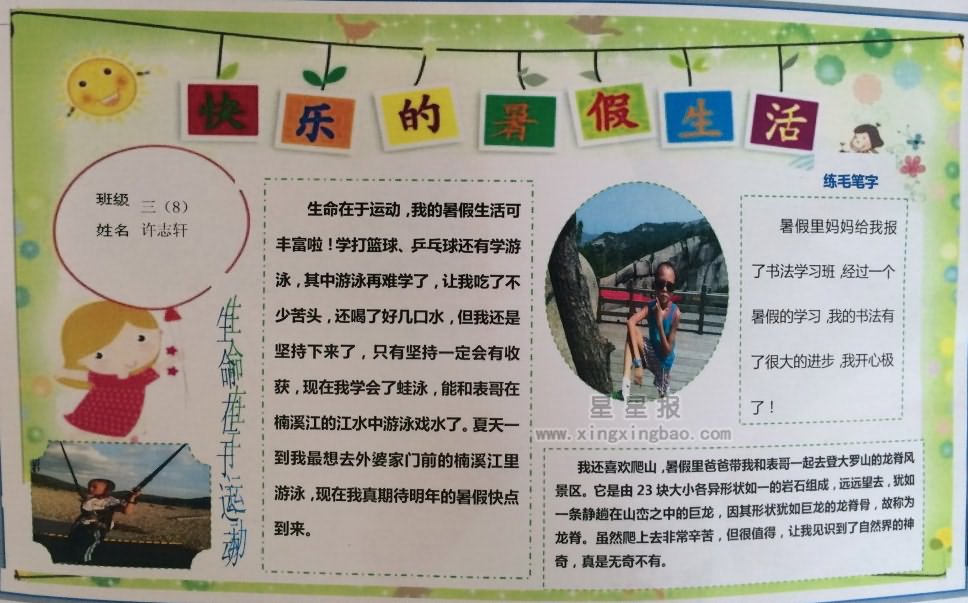 快乐的暑假生活
班级 三（8）
姓名 许志轩
生命在于运动
生命在于运动，我的暑假生活可
丰富啦！学打篮球、乒乓球还有学游
泳，其中游泳再难学了，让我吃了不
少苦头，还喝了好几口水，但我还是
坚持下来了，只有坚持一定会有收
获，现在我学会了蛙泳，能和表哥在
楠溪江的江水中游泳戏水了。夏天一
到我最想去外婆家门前的楠溪江里
游泳，现在我真期待明年的暑假快点
到来。
练毛笔字
暑假里妈妈给我报
了书法学习班，经过一个
暑假的学习，我的书法有
了很大的进步，我开心极
了！
星星报
www.xingxingbao.com
我还喜欢爬山，暑假里爸爸带我和表哥一起去登大罗山的龙脊风
景区。它是由 23 块大小各异形状如一的岩石组成，远远望去，犹如
一条静趟在山峦之中的巨龙，因其形状犹如巨龙的龙脊骨，故称为
龙脊。虽然爬上去非常辛苦，但很值得，让我见识到了自然界的神
奇，真是无奇不有。